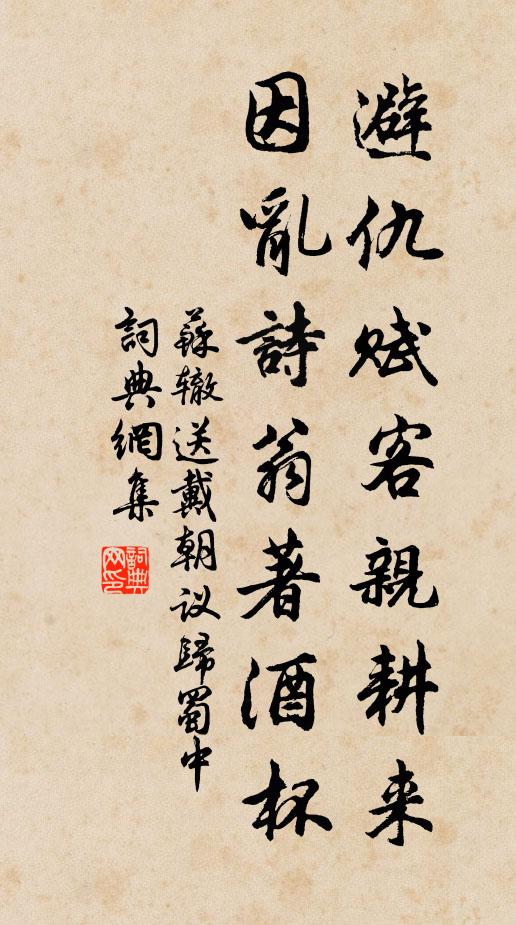 避仇賦客親耕耒
因亂詩翁著酒杯
蘇轍送戴朝议歸蜀中
詞典網集
詞典网印